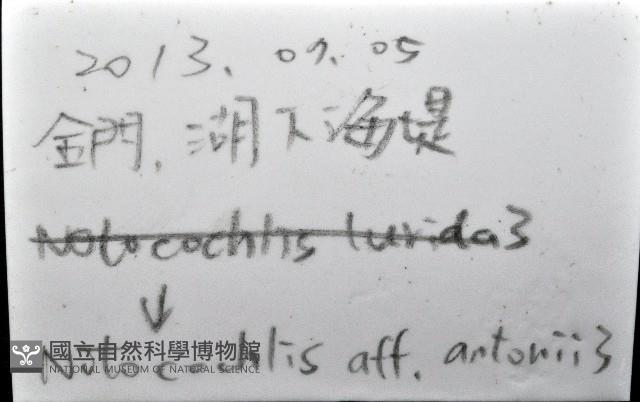 2013. 07. 05
金門, 湖下海堤
Notocochlis lurida 3
↓
Notocochlis aff. antonii 3
國立自然科學博物館
NATIONAL MUSEUM OF NATURAL SCIENCE